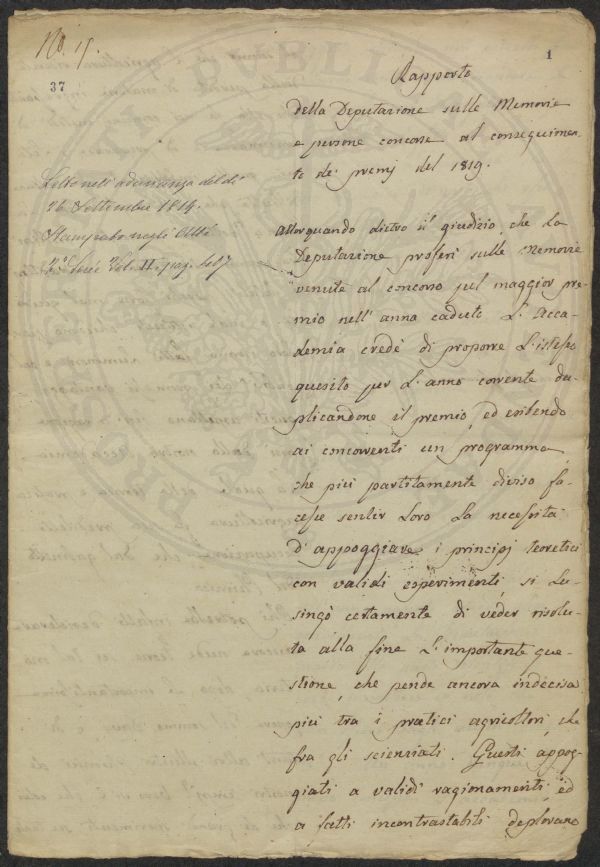 No. 15.
1
37
Rapporto
della Deputazione sulle Memorie
e persone concorse al conseguimen-
to de' premj del 1819.
Letto nell'adunanza del dì
26 Settembre 1819.
Stampato negli Atti
Serie Vol. II. pag. 407
Allorquando dietro il giudizio, che la
Deputazione proferì sulle Memorie
venute al concorso pel maggior pre-
mio nell'anno caduto L'Acca-
demia credè di proporre l'istesso
quesito per l'anno corrente du-
plicandone il premio, ed esibendo
ai concorrenti un programma,
che più partitamente diviso fa-
cesse sentir loro la necessità
d'appoggiare i principj teoretici
con validi esperimenti, si lu-
singò certamente di veder risolu-
ta alla fine l'importante que-
stione, che pende ancora indecisa
più tra i pratici agricoltori, che
fra gli scienziati. Questi appog-
giati a validi ragionamenti, ed
a fatti incontrastabili deplorano